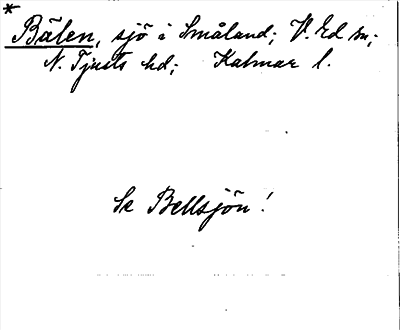 * Bälen, sjö i Småland; V. Ed sn;
N. Tjusts hd; Kalmar l.
Se Bellsjön!